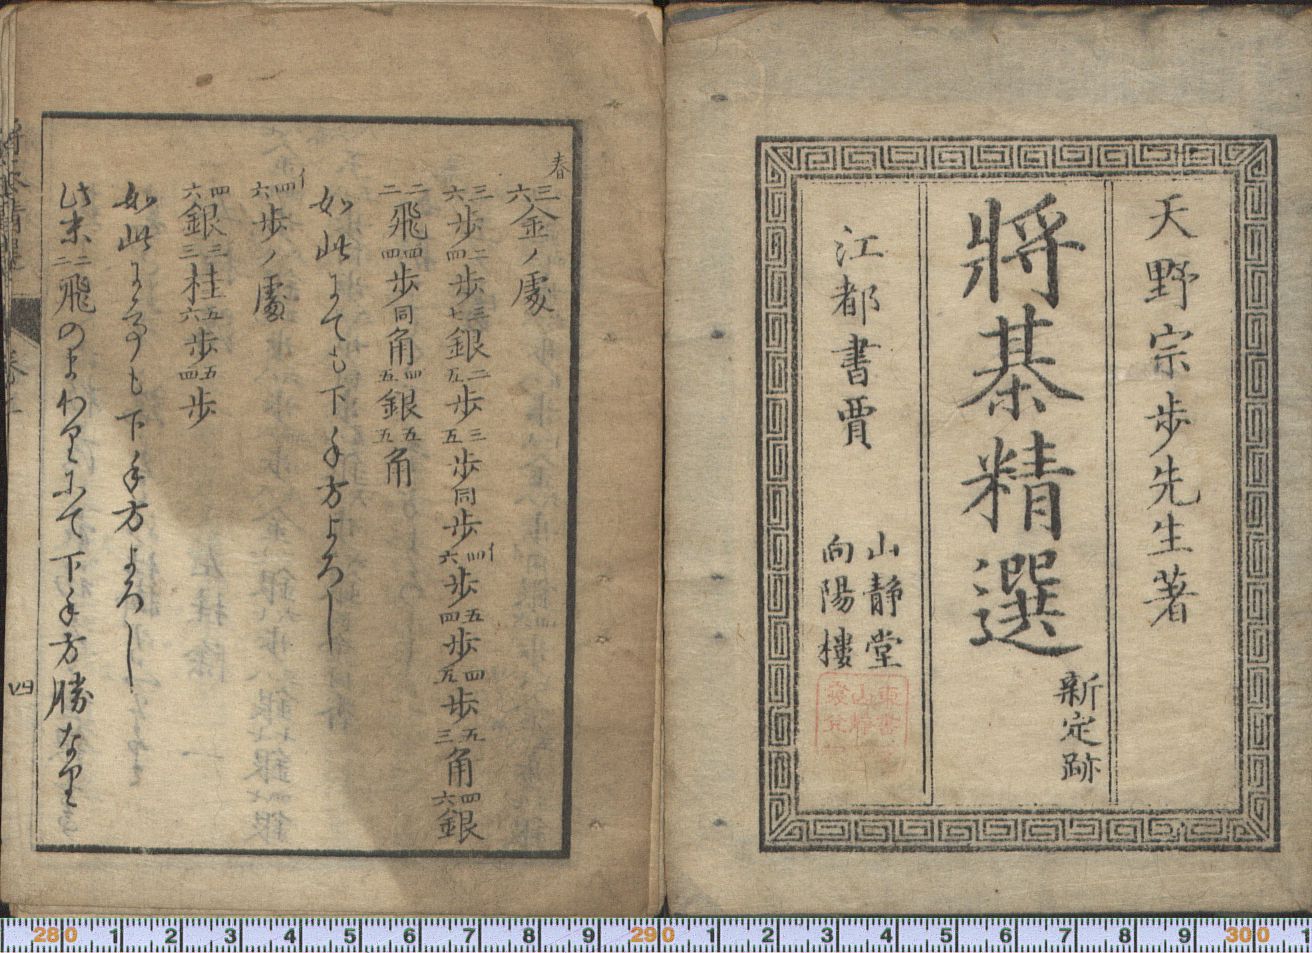 天野宗歩先生著
將棊精選
新定跡
江都書賈
山静堂
向陽樓
春
三六金ノ處
三六歩二四歩三七銀二五歩三五歩同歩四六歩五四歩四五歩五三角四六銀
二二飛四四歩同角四五銀五五角
如此にても下手方よろし
四六歩ノ處
四六銀三三桂五六歩五四歩
如此にても下手方よろし
此末二二飛のまわりにて下手方勝なり
四
280 1 2 3 4 5 6 7 8 9 290 1 2 3 4 5 6 7 8 9 300 1